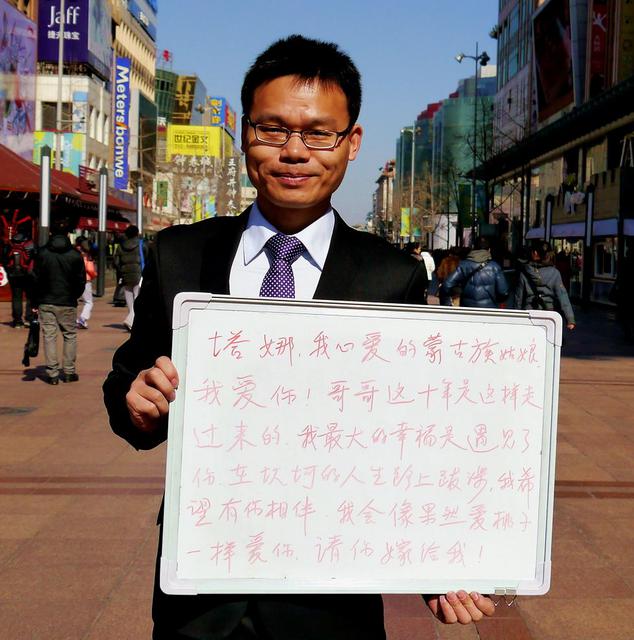 Jaff
捷夫珠宝
Meters/bonwe
塔娜，我心爱的蒙古族姑娘
我爱你！哥哥这十年是这样走
过来的，我最大的幸福是遇见了
你，在坎坷的人生路上跋涉，我希
望有你相伴，我会像果然爱桃子
一样爱你，请你嫁给我！